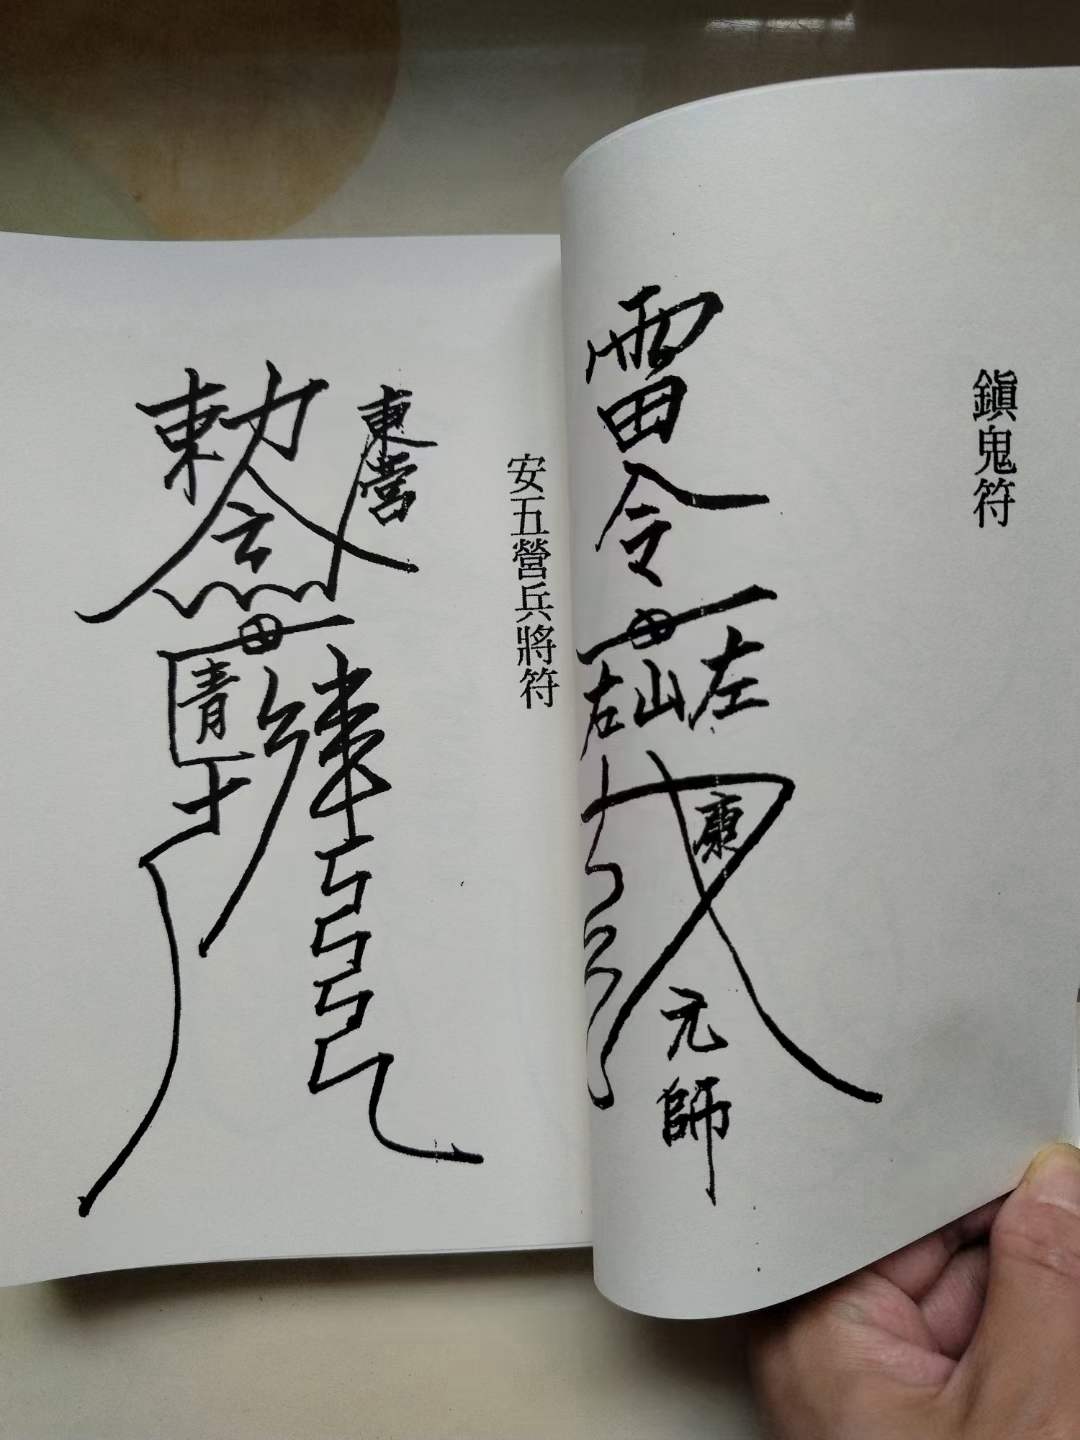 鎭鬼符
雷令
左山右
康
元師
安五營兵將符
東营
勅令
青